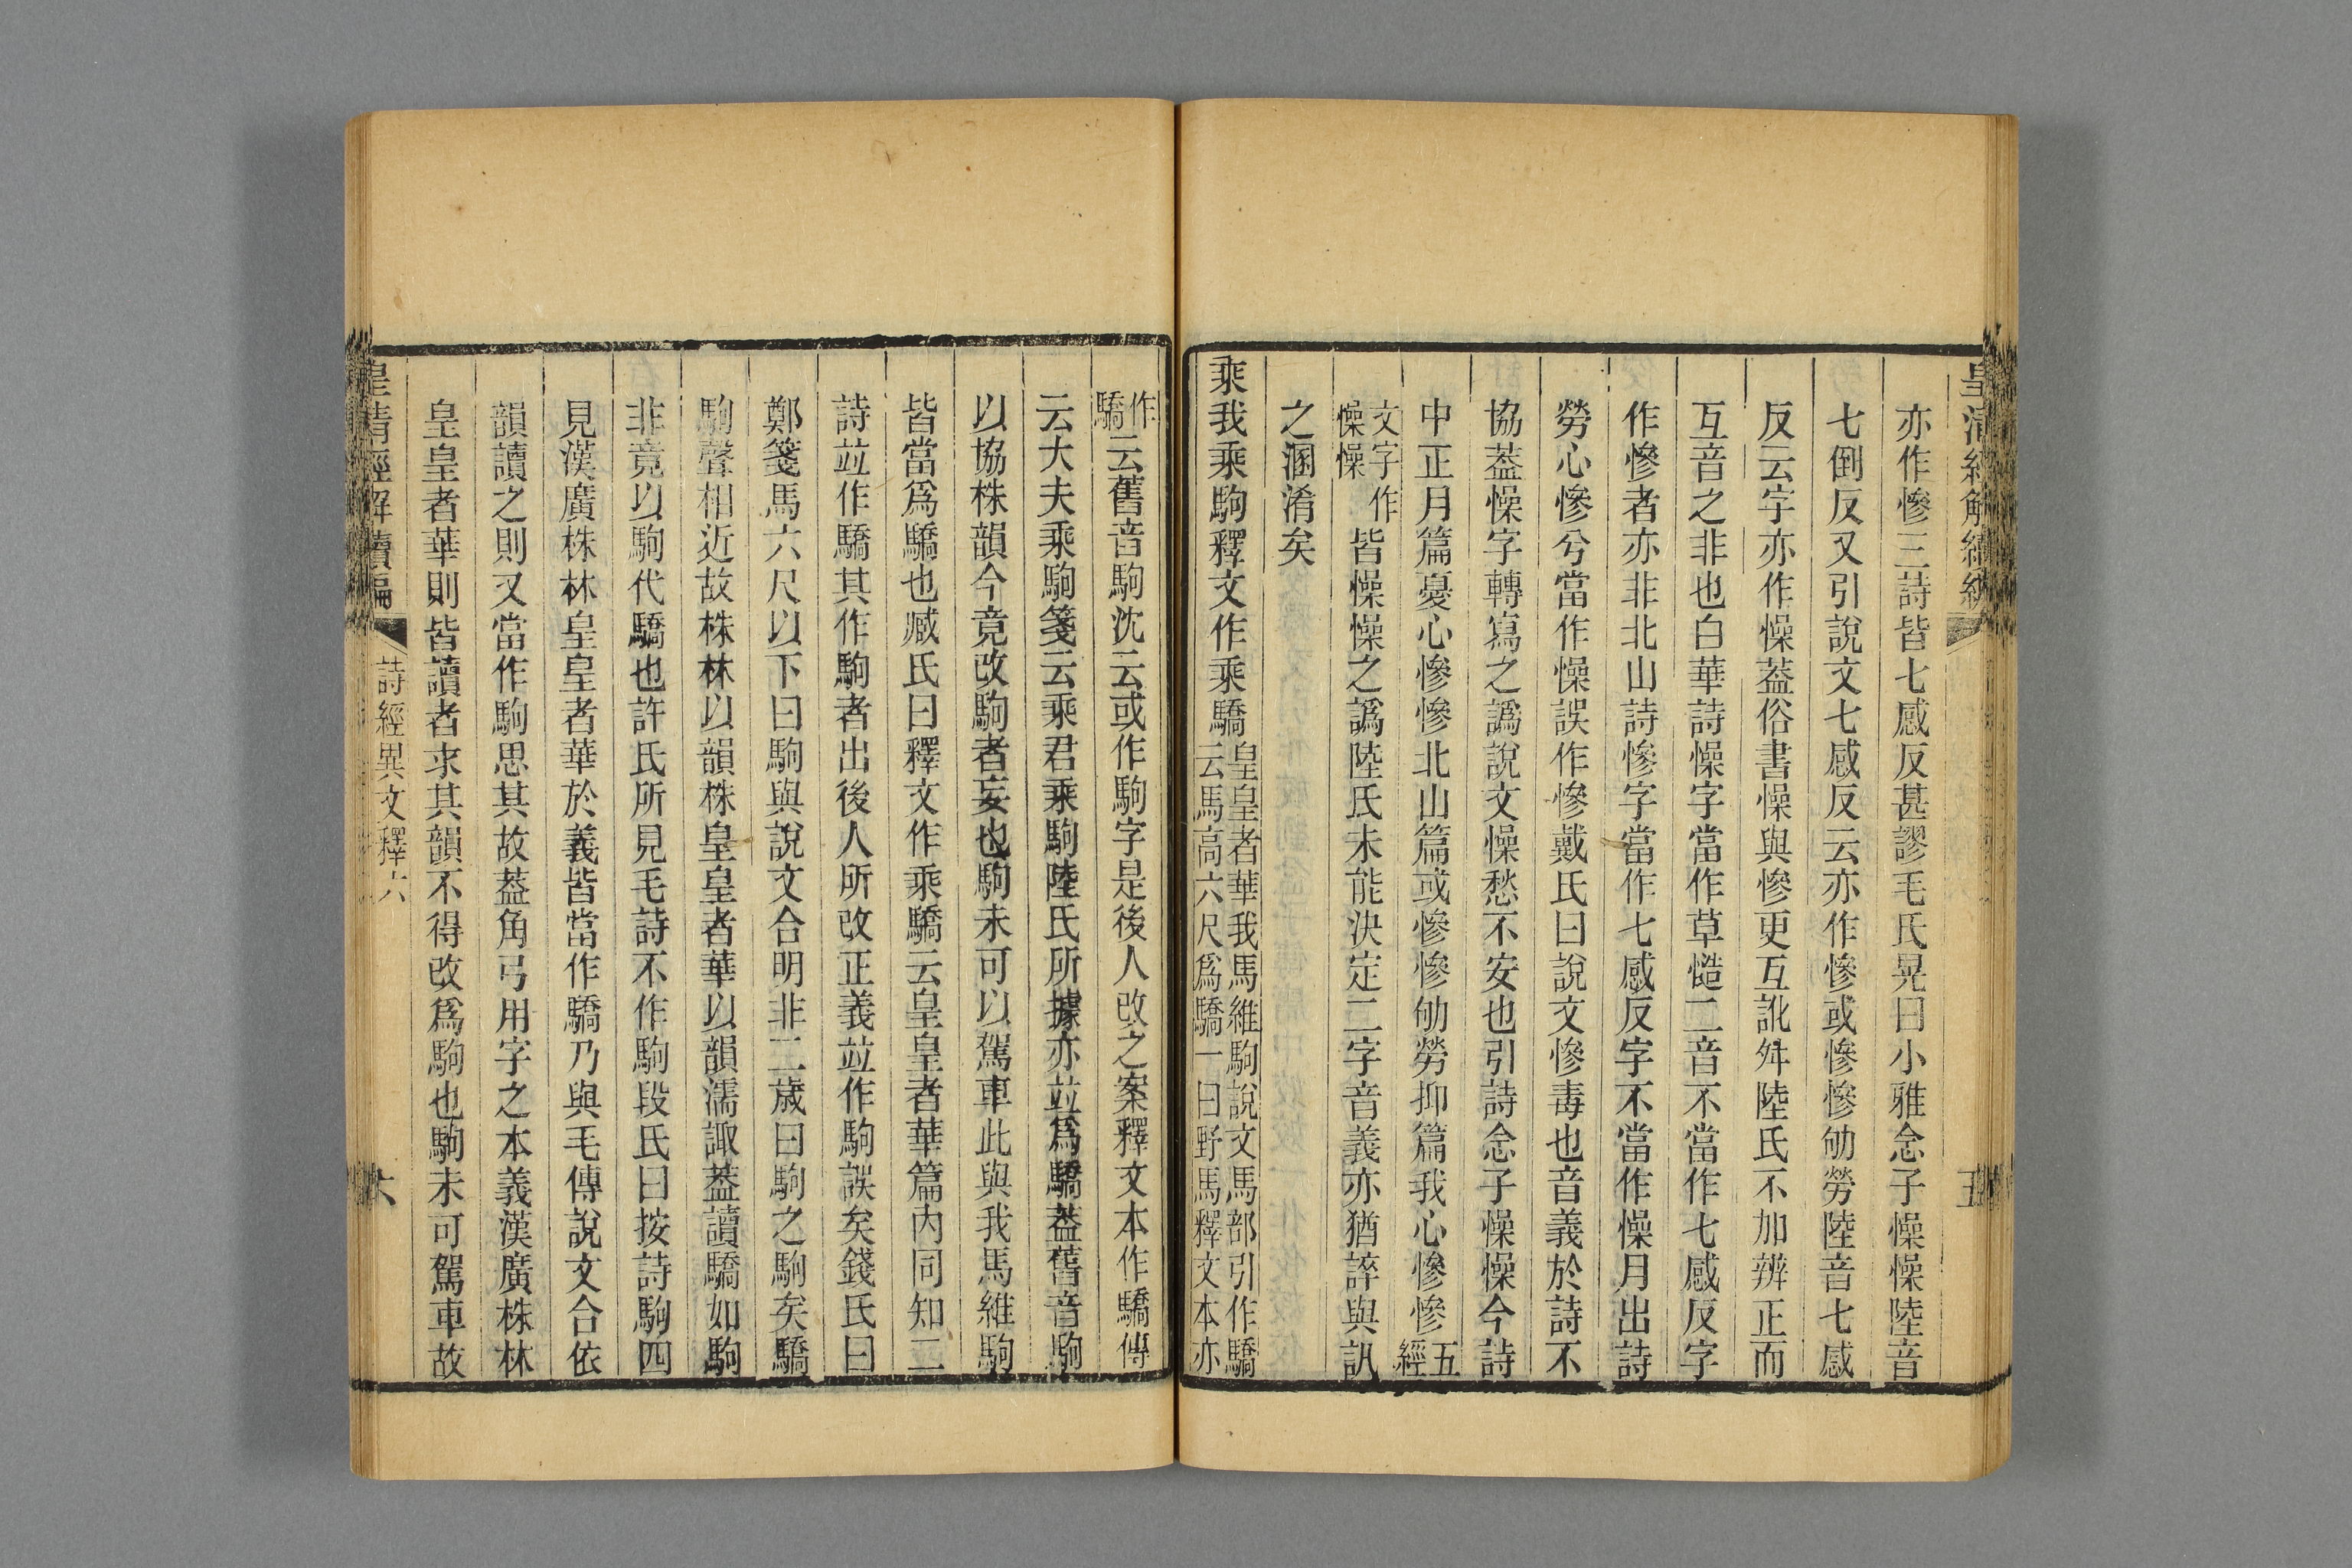 皇清經解續編
五
亦作慘三詩皆七感反甚謬毛氏晃曰小雅念子懆懆陸音
七倒反又引說文七感反云亦作慘或慘慘劬勞陸音七感
反云字亦作懆蓋俗書懆與慘更互訛舛陸氏不加辨正而
互音之非也白華詩懆字當作草慥二音不當作七感反字
作慘者亦非北山詩慘字當作七感反字不當作懆月出詩
勞心慘兮當作懆誤作慘戴氏曰說文慘毒也音義於詩不
協蓋懆字轉寫之譌說文懆愁不安也引詩念子懆懆今詩
中正月篇憂心慘慘北山篇或慘慘劬勞抑篇我心慘慘五經
文字作懆懆皆懆懆之譌陸氏未能決定二字音義亦猶誶與訊
之溷淆矣
乘我乘駒釋文作乘驕皇皇者華我馬維駒說文馬部引作驕云馬高六尺爲驕一曰野馬釋文本亦
作驕云舊音駒沈云或作駒字是後人改之案釋文本作驕傳
云大夫乘駒箋云乘君乘駒陸氏所據亦並爲驕蓋舊音駒
以協株韻今竟改駒者妄也駒未可以駕車此與我馬維駒
皆當爲驕也臧氏曰釋文作乘驕云皇皇者華篇內同知二
詩並作驕其作駒者出後人所改正義並作駒誤矣錢氏曰
鄭箋馬六尺以下曰駒與說文合明非二歲曰駒之駒矣驕
駒聲相近故株林以韻株皇皇者華以韻濡諏蓋讀驕如駒
非竟以駒代驕也許氏所見毛詩不作駒段氏曰按詩駒四
見漢廣株林皇皇者華於義皆當作驕乃與毛傳說文合依
韻讀之則又當作駒思其故蓋角弓用字之本義漢廣株林
皇皇者華則皆讀者求其韻不得改爲駒也駒未可駕車故
皇清經解續編
詩經異文釋六
六